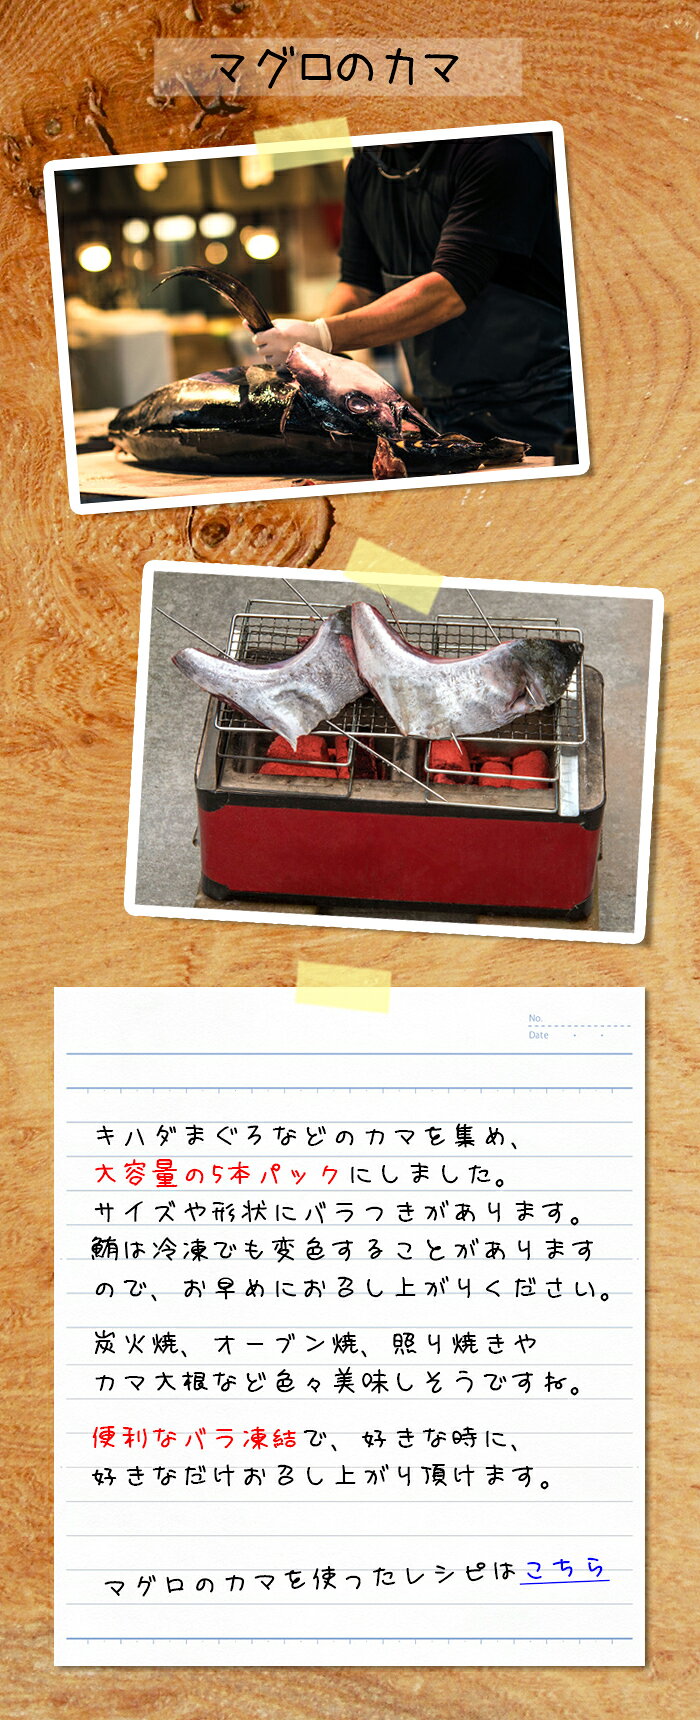 マグロのカマ
No.
Date
キハダまぐろなどのカマを集め、
大容量の5本パックにしました。
サイズや形状にバラつきがあります。
鮪は冷凍でも変色することがあります
ので、お早めにお召し上がりください。
炭火焼、オーブン焼、照り焼きや
カマ大根など色々美味しそうですね。
便利なバラ凍結で、好きな時に、
好きなだけお召し上がり頂けます。
マグロのカマを使ったレシピはこちら